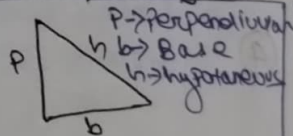 P→perpendicular
h b→Base
P h→hypotaneous
b